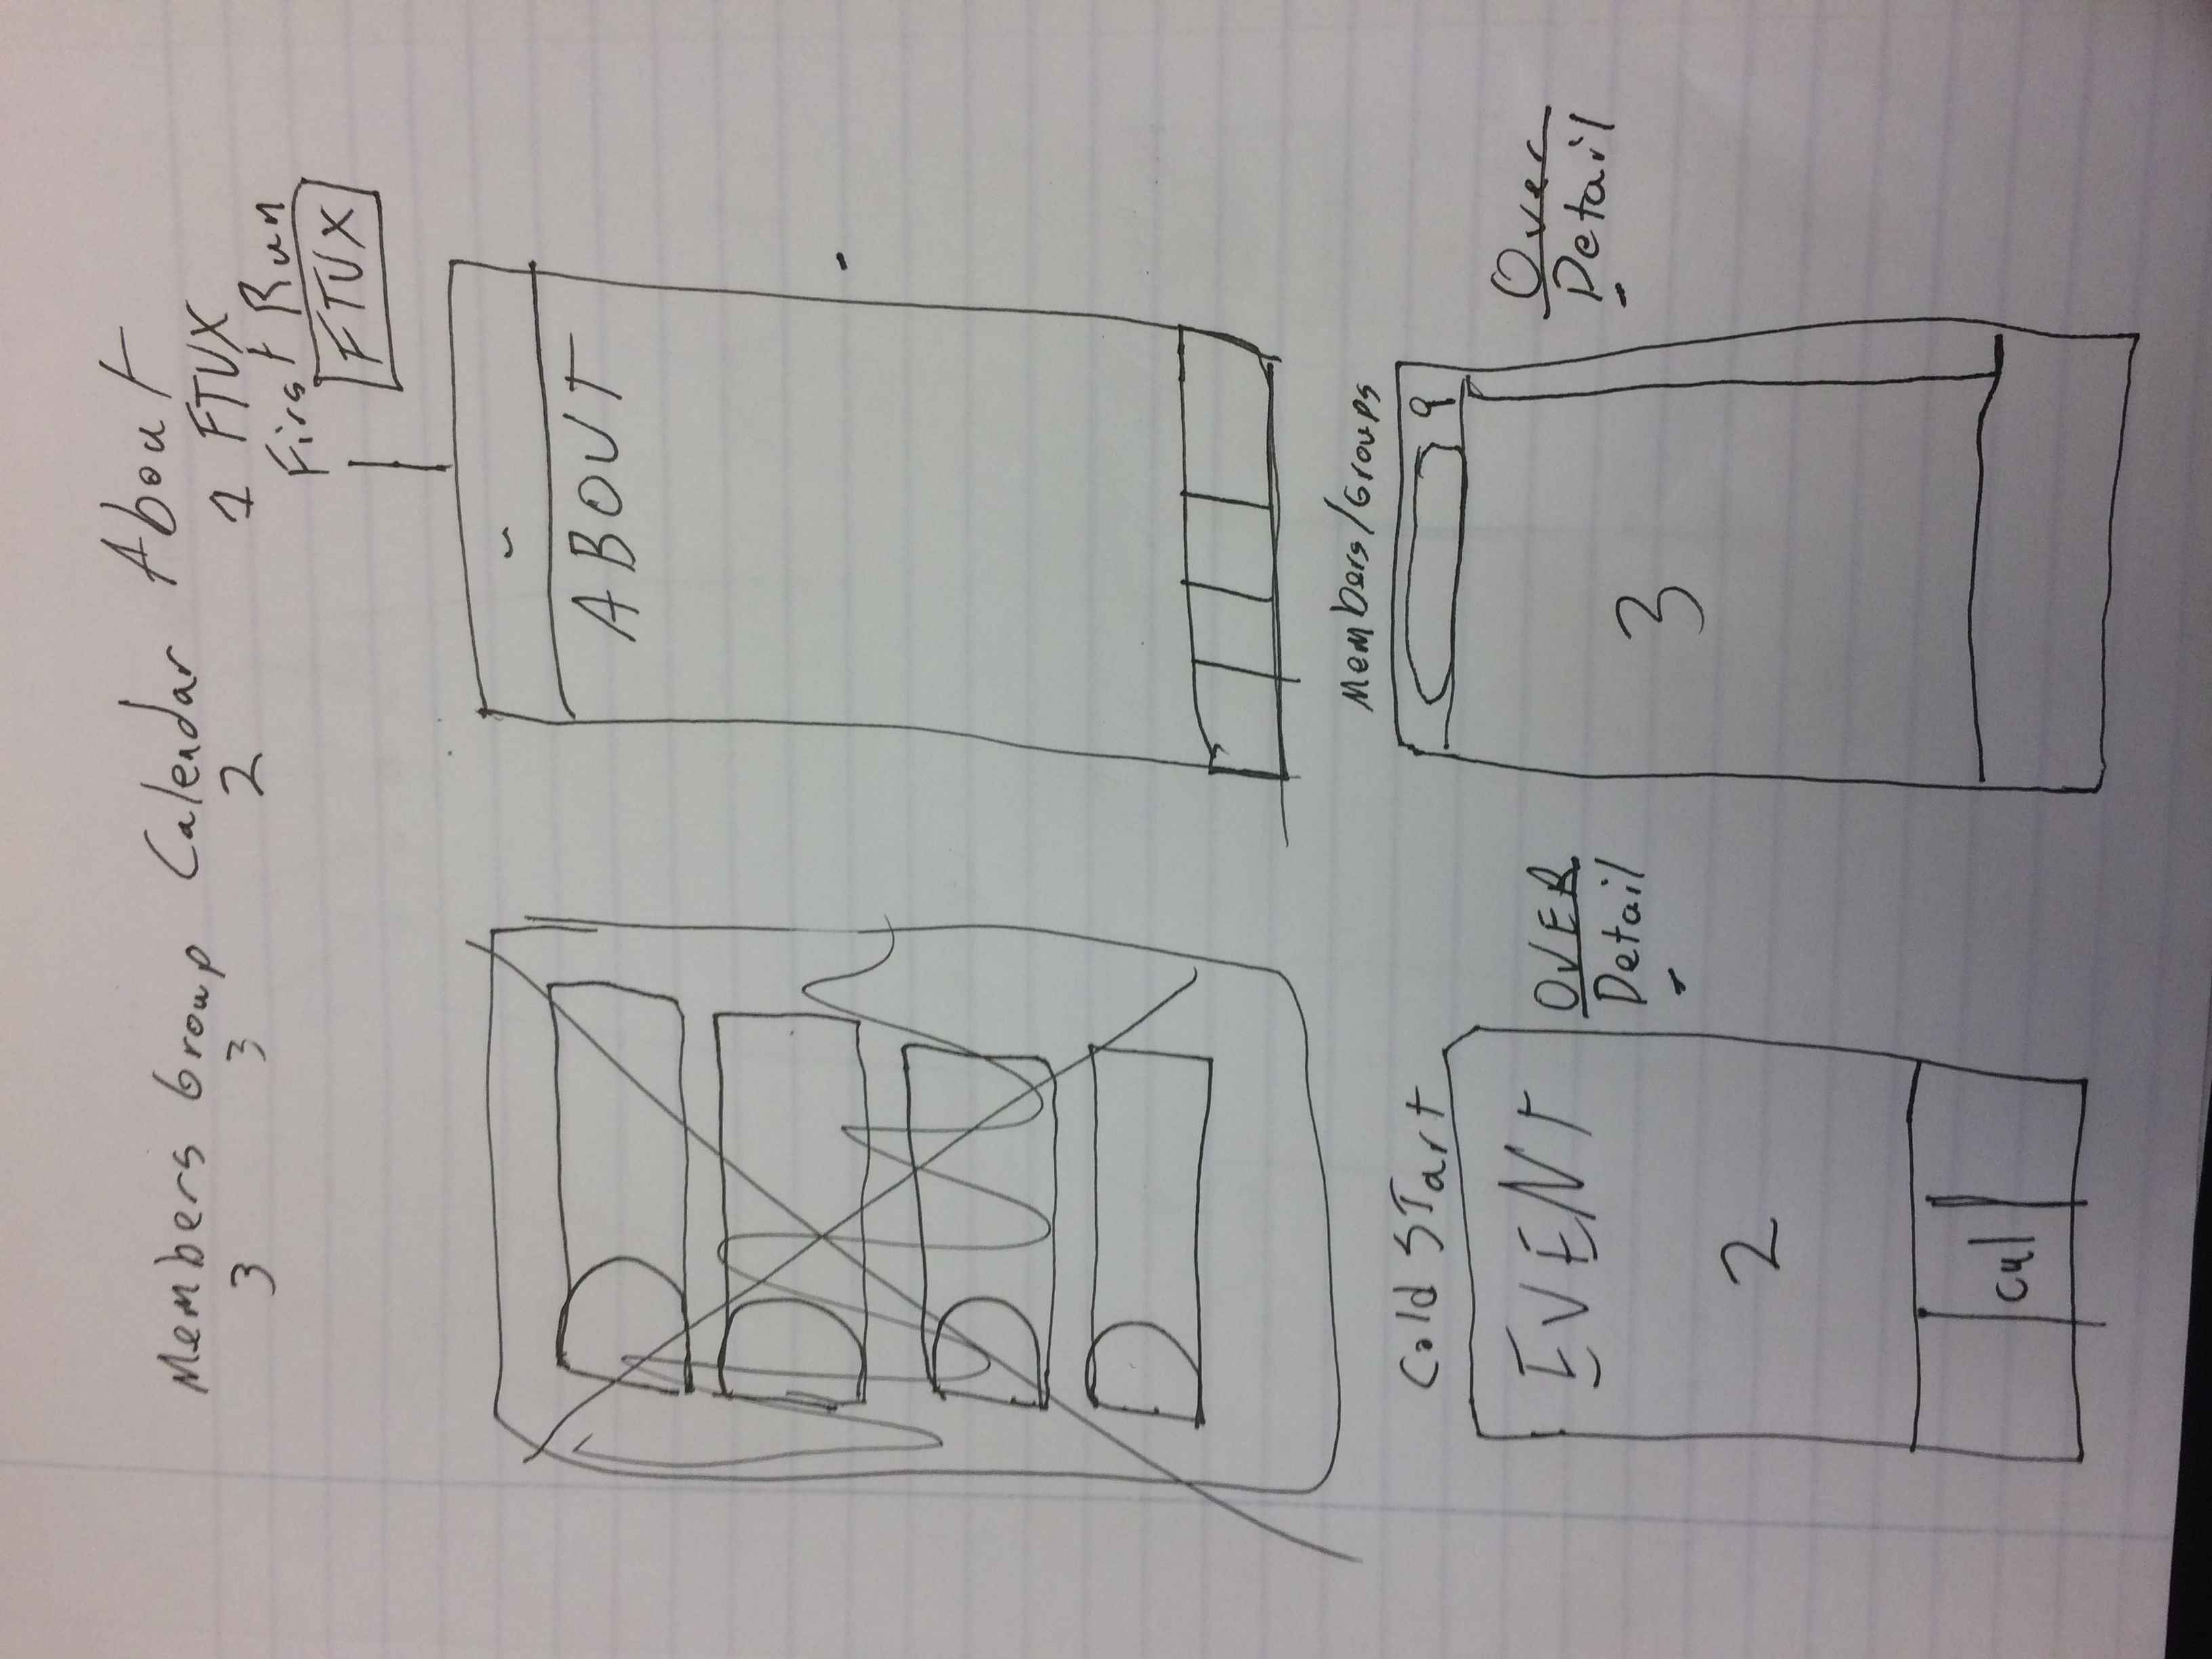 Members Group Calendar About
3 3 2 1 FTUX
First Run
FTUX
ABOUT
Cold START
EVENT
OVER
Detail
2
cal
Members/Groups
Over
Detail
3